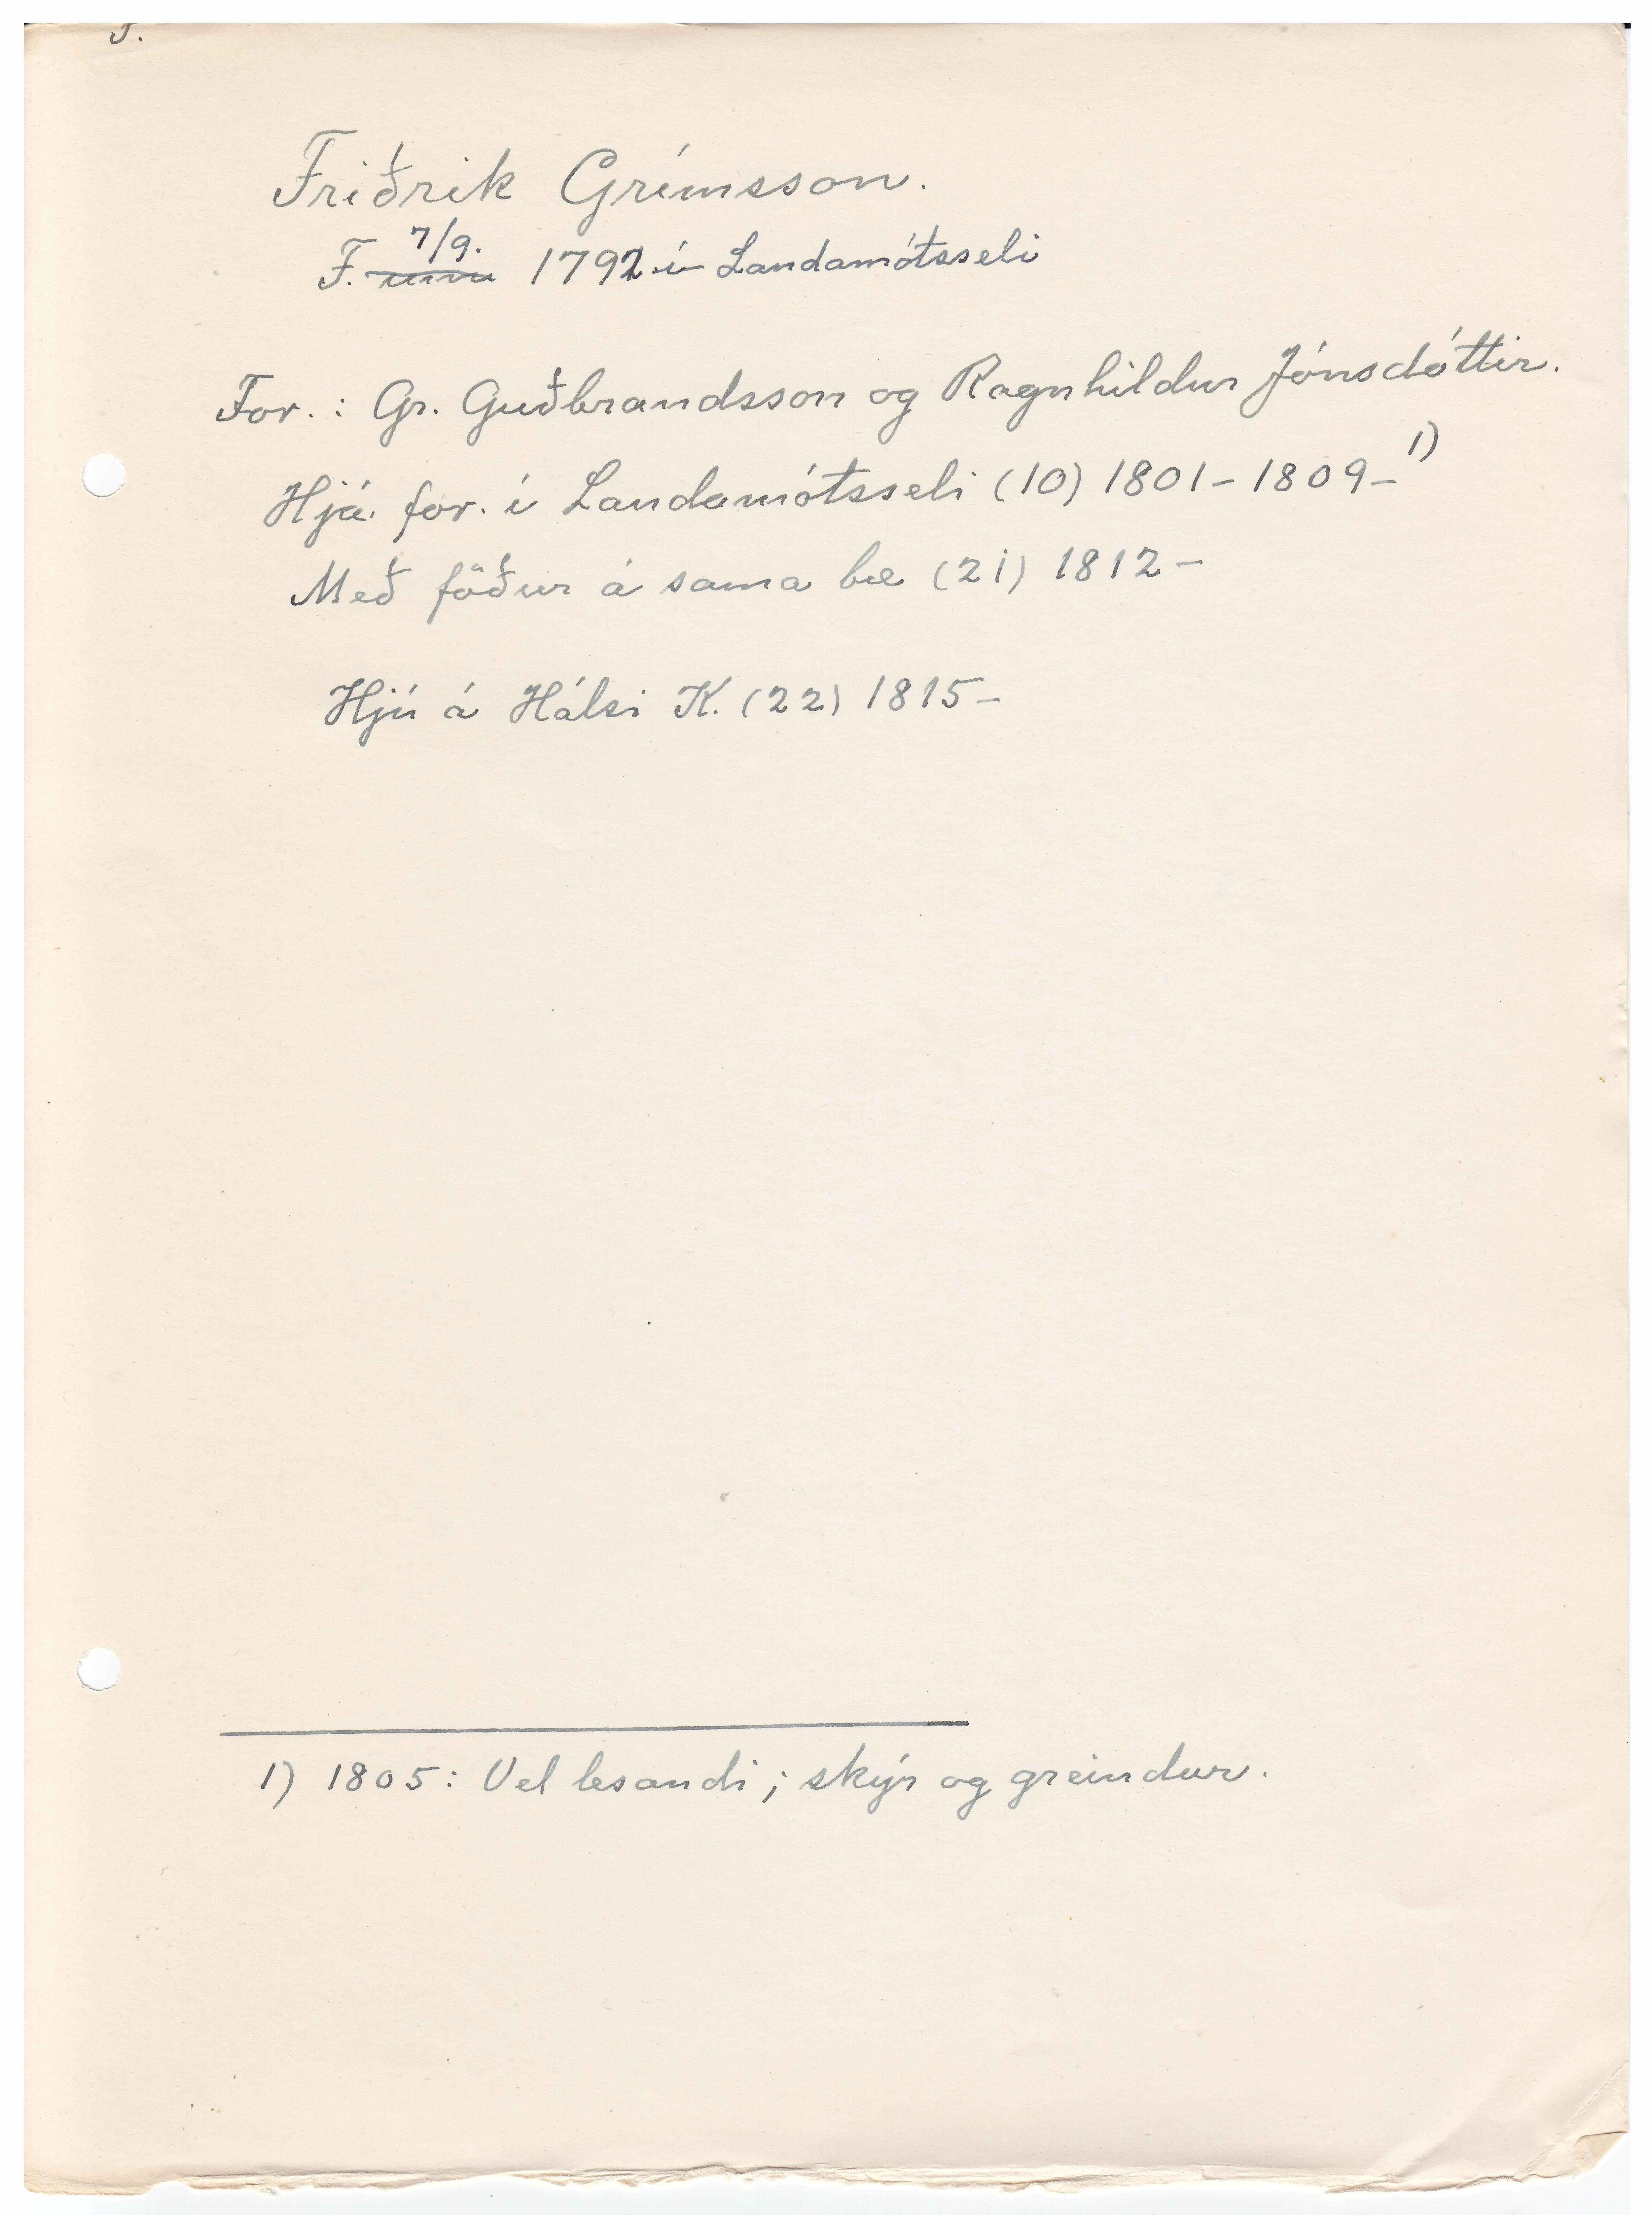 Friðrik Grímsson.
7/9.
F. 1792 í Landamótsseli
For.: Gr. Guðbrandsson og Ragnhildur Jónsdóttir.
Hjá for. í Landamótsseli (10) 1801-1809- 1)
Með föður á sama bæ (21) 1812-
Hjú á Hálsi K. (22) 1815-
1) 1805: Vel lesandi; skýr og greindur.